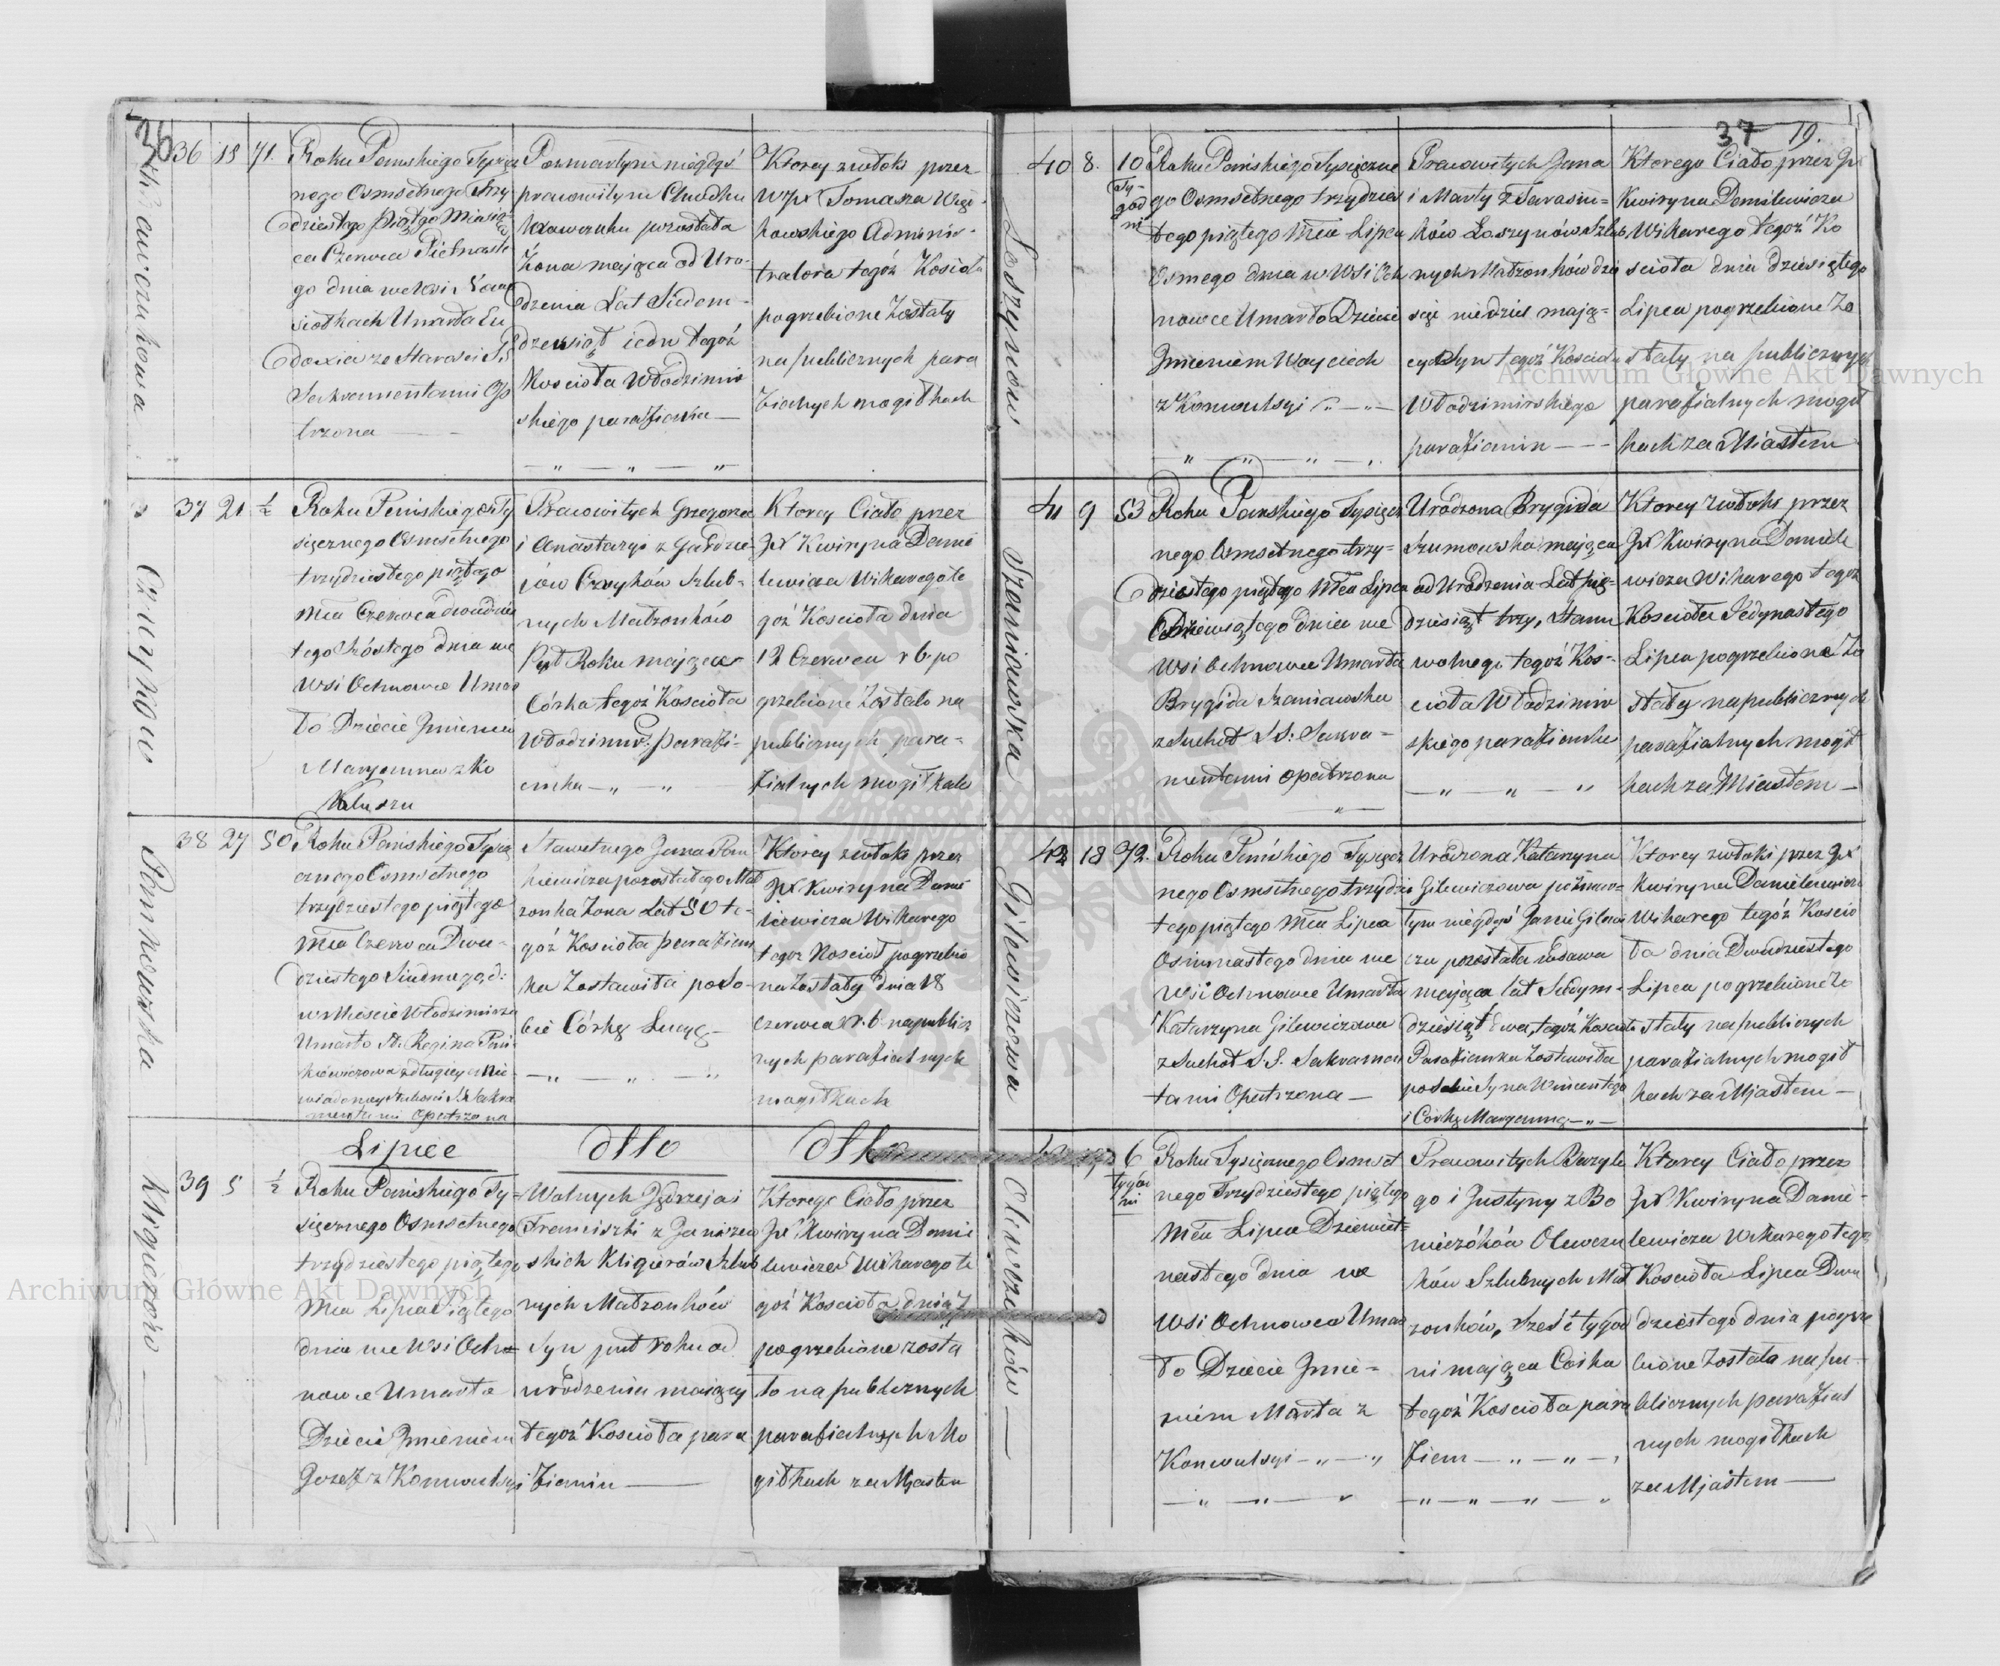 36
36 15 71.
Roku Panskiego Tysiącz
nego Osmsetnego Trzy
dziestego Piątego Miesią
ca Czerwca Pietnaste
go dnia we Wsi
siołkach Umarła Eu
doxia ze Starosci SS
Sakramentami Opa
trzona
Po zmarłym niegdyś
pracowitym
pozostała
Żona mająca od Uro-
dzenia Lat Siedem-
dziesiąt ieden tegoż
Kościoła Włodzimir
skiego parafianka
Ktorey zwłoki przez
WJX Tomasza
Adminis-
tratora tegóż Kościoła
pogrzebione Zostały
na publicznych para
fialnych mogiłkach
Czuyków
37 21 ½
Roku Panskiego Ty
sięcznego Osmsetnego
trzydziestego piątego
Mca Czerwca dwudzies
tego Szóstego dnia we
Wsi Ochnowce Umar
ło Dziecie Jmieniem
Maryanna z Ko
kluszu
Pracowitych Grzegorza
i Anastazyi z
Czuyków Szlub-
nych Małzonków
Puł Roku mająca
Córka tegoż Kościoła
Włodzimir: parafi-
anka
Ktorey Ciało przez
JX Kwiryna Dani
lewicza Wikarego te
goż Kościoła dnia
12 Czerwca r b po
grzebione Zostało na
publicznych para-
fialnych mogiłkach
Pankowska
38 27 50
Roku Panskiego Tysią
cznego Osmsetnego
trzydziestego piątego
Mca Czerwca Dwu-
dziestego Siudmego d:
w Mieście Włodzimirzu
Umarła Regina Pan
kiewiczowa z długiey a nie
Sakra
mentami Opatrzona
Sławetnego Jana Pan
kiewicza pozostałego Mał
zonka Żona Lat 50 te-
góż Kościoła parafian
ka Zostawiła po So-
bie Córkę Łucyę
Ktorey zwłoki przez
JX Kwiryna Dani
lewicza Wikarego
tegoż Kościoł pogrzebio
ne Zostały dnia 18
Czerwca r. b. na publicz
nych parafialnych
mogiłkach
Lipiec
Kligierów
39 5 ½
Roku Panskiego Ty-
sięcznego Osmsetnego
trzydziestego piątego
Mca Lipca Piątego
dnia we Wsi Och-
nowce Umarło
Dziecie Jmieniem
Jozef z Konwulsyi
Wolnych Jędrzeja i
Franciszki z
skich Kligierów Szlub
nych Małzonków
Syn puł roku od
urodzenia maiący
tegoż Kościoła para
fianin
Ktorego Ciało przez
JX Kwiryna Dani
lewicza Wikarego te
goż Kościoła dnia 7
pogrzebione zosta
ło na publicznych
parafialnych Mo
giłkach za Mjastem
37 19.
Łoszynów
40 8. 10
Ty-
god
ni
Roku Panskiego Tysięczne
go Osmsetnego trzydzies
tego piątego Mca Lipca
Osmego dnia w Wsi Och
nowce Umarło Dziecie
Jmieniem Woyciech
z Konwulsyi
Pracowitych Jana
i Marty z Tarasiu-
ków Łoszynów Szlub
nych Małzonków dzie
sięć niedziel mają-
cy Syn tegoż Kościoła
Włodzimirskiego
parafianin
Ktorego Ciało przez JX
Kwiryna Danilewicza
Wikarego tegoż Ko
ścioła dnia dziesiątego
Lipca pogrzebione Zo
stały na publicznych
parafialnych mogił
kach za Miastem
Szaniawska
41 9 53
Roku Panskiego Tysięcz
nego Osmsetnego trzy-
dziestego piątego Mca Lipca
Dziewiątego dnia we
Wsi Ochnowce Umarła
Brygida Szaniawska
z Suchot SS: Sakra-
mentami opatrzona
Urodzona Brygida
mająca
od Urodzenia Lat pię-
dziesiąt trzy, Stanu
wolnego tegoż Koś-
cioła Włodzimir
skiego parafianka
Ktorey zwłoki przez
JX Kwiryna Danile
wicza Wikarego tegoż
Kościoła Jedynastego
Lipca pogrzebione Zo
stały na publicznych
parafialnych mogił
kach za Miastem
Gilewiczowa
42 18 72.
Roku Panśkiego Tysięcz
nego Osmsetnego trzydzies
tego piątego Mca Lipca
Osimnastego dnia we
Wsi Ochnowce Umarła
Katarzyna Gilewiczowa
z Suchot S.S. Sakramen
tami Opatrzona
Urodzona Katarzyna
Gilewiczowa po zmar-
łym niegdyś Janie Gilewi
czu pozostała wdowa
mająca lat Siedym-
dziesiąt dwa, tegoż Kościoła
Parafianka Zostawiła
po sobie Syna Wincentego
i Córkę Maryannę
Ktorey zwłoki przez JX
Kwiryna Danilewicza
Wikarego tegóż Kościo
ła dnia Dwudziestego
Lipca pogrzebione Zo
stały na publicznych
parafialnych mogił
kach za Mjastem
Olewczuków
6
tygod
ni
Roku Tysięcznego Osmset
nego Trzydziestego piątego
Mca Lipca Dziewiet-
nastego dnia we
Wsi Ochnowce Umar
ło Dziecie Jmie-
niem Marta z
Konwulsyi
Pracowitych Bazyle
go i Justyny z Bo
Olewczu
ków Szlubnych Mał
zonków, Sześć tygod
ni mająca Córka
tegóż Kościoła para
fian
Ktorey Ciało przez
JX Kwiryna Dani-
lewicza Wikarego tego
Kościoła Lipca Dwu
dziestego dnia pogrze
bione Zostało na pu-
blicznych parafial
nych mogiłkach
za Mjastem
Archiwum Główne Akt Dawnych
Archiwum Główne Akt Dawnych